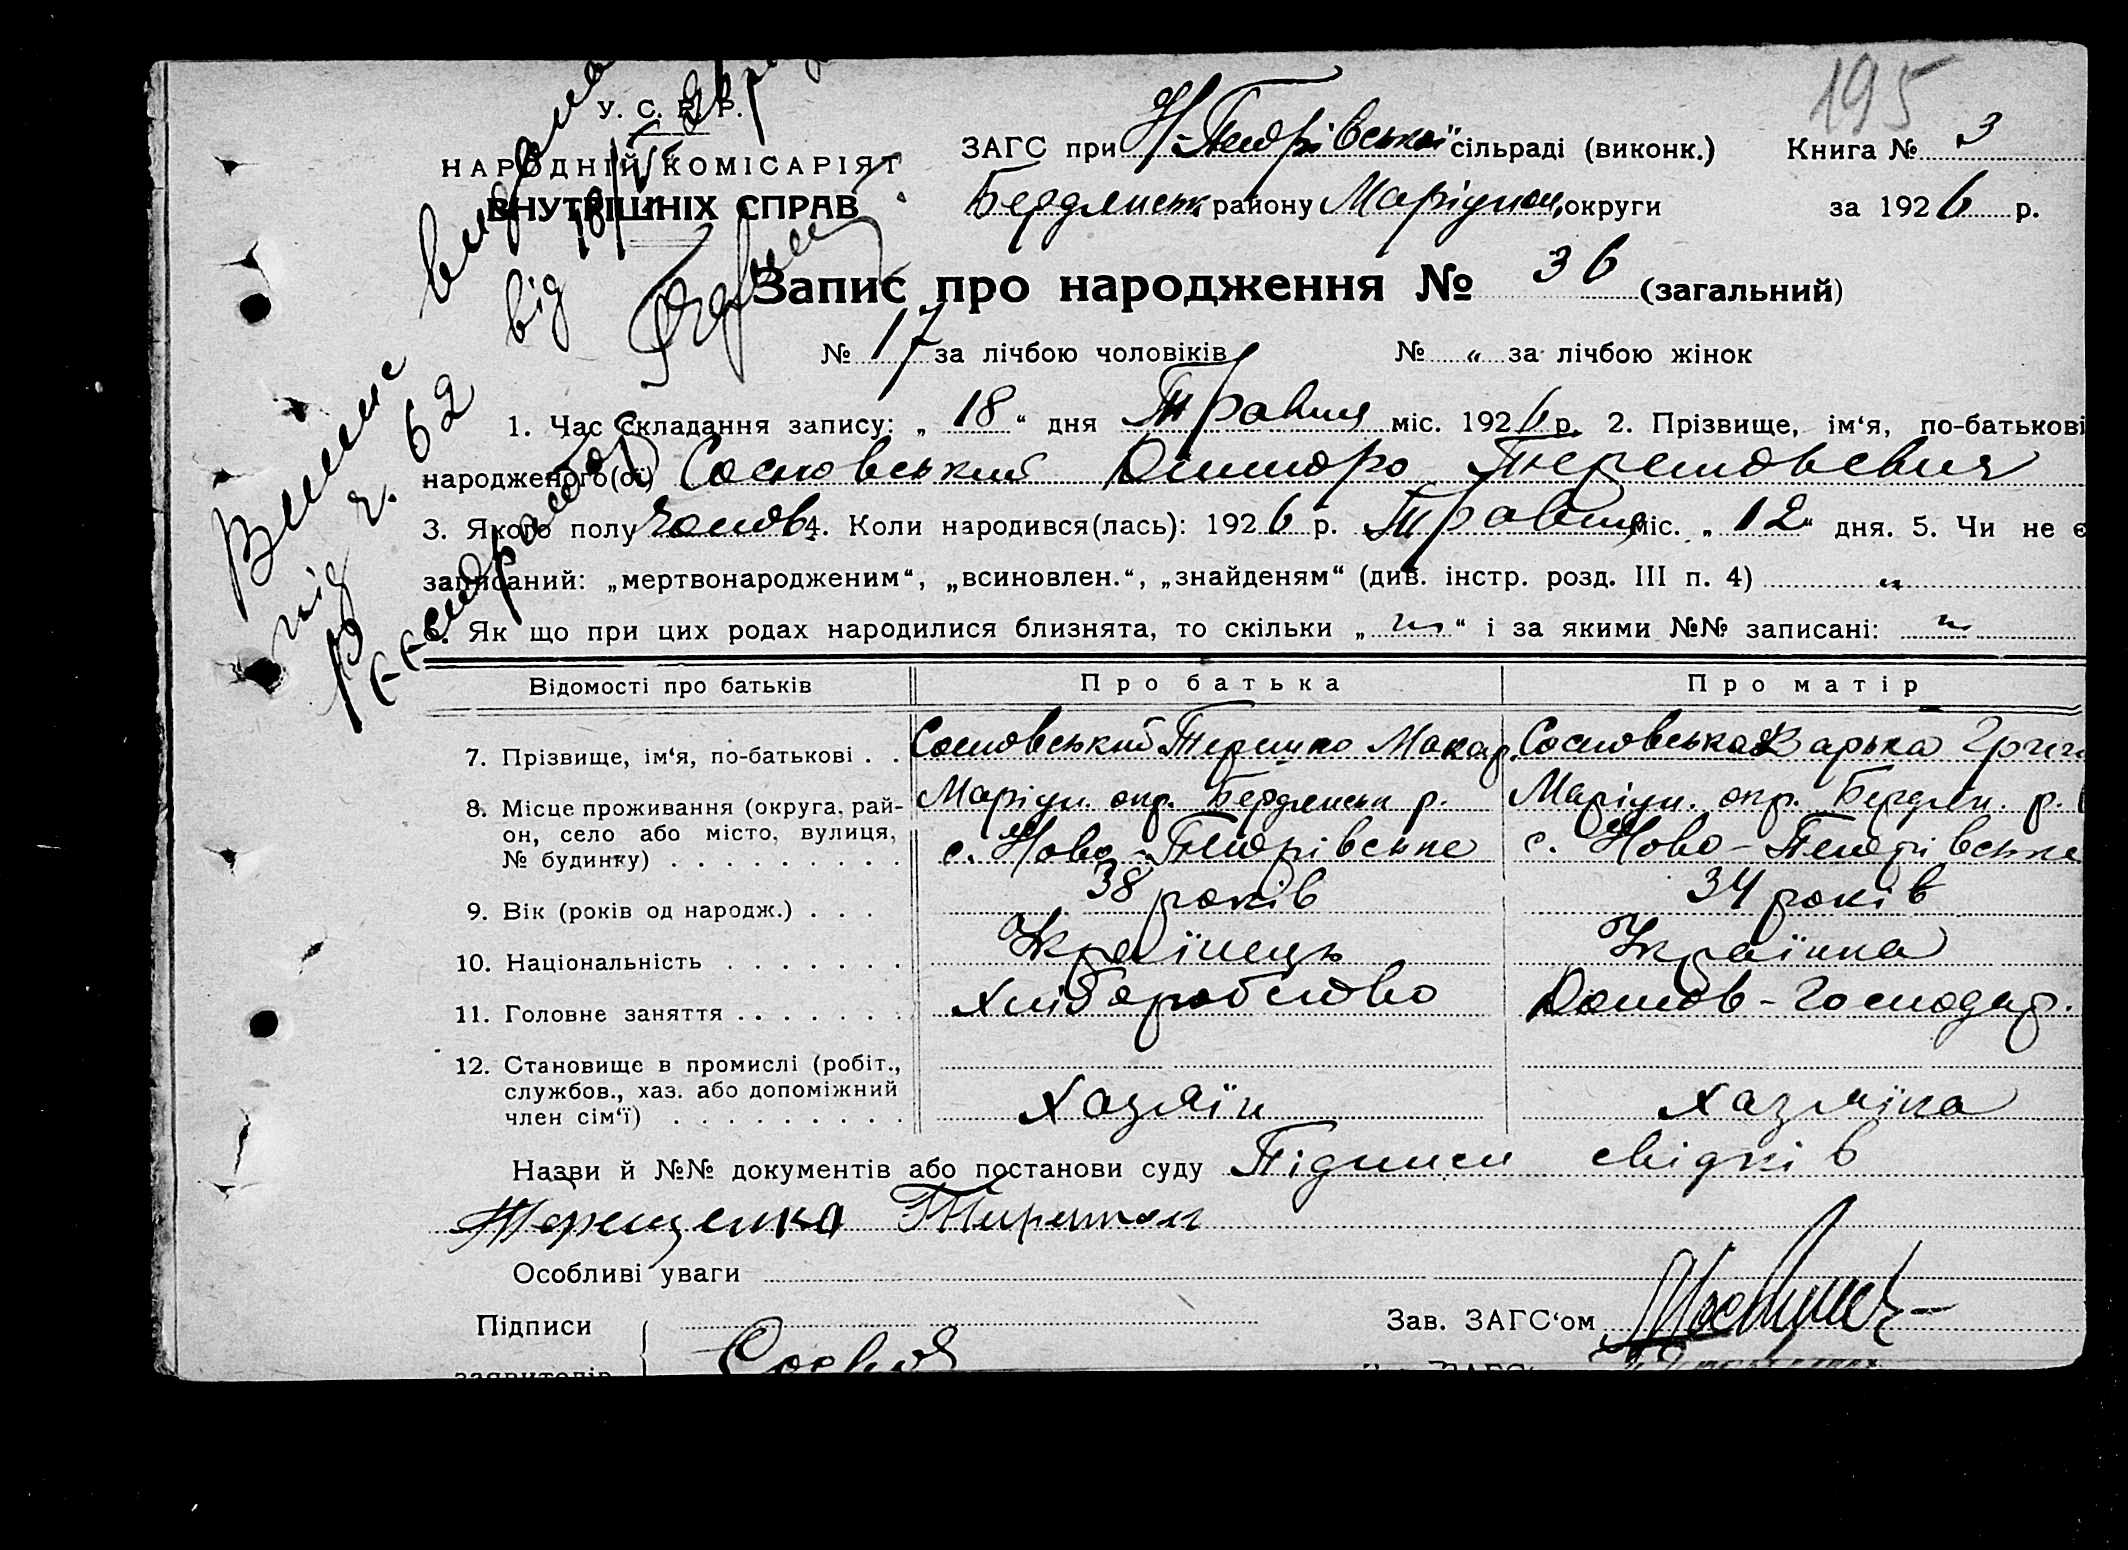 195
У. С. Р. Р.
НАРОДНІЙ КОМІСАРІЯТ
ВНУТРІШНІХ СПРАВ
ЗАГС при Н-Петрівській сільраді (виконк.) Книга № 3
Бердянськ. району Маріупол. округи за 1926 р.
Запис про народження № 36 (загальний)
№ 17 за лічбою чоловіків № „ за лічбою жінок
Випис видана
під ч. 62 від 18/V 26 р.
1. Час складання запису: „ 18 “ дня Травня міс. 1926 р. 2. Прізвище, ім‘я, по-батькові
народженого(ої) Сосновський Дмитро Терешкович
3. Якого полу чолов. 4. Коли народився(лась): 1926 р. Травня міс. „ 12 “ дня. 5. Чи не є
записаний: „мертвонародженим“, „всиновлен.“, „знайденям“ (див. інстр. розд. III п. 4) „
6. Як що при цих родах народилися близнята, то скільки „ „ “ і за якими №№ записані: „
Відомості про батьків Про батька Про матір
7. Прізвище, ім‘я, по-батькові . . Сосновський Терешко Макар. Сосновська Варька Григ
8. Місце проживання (округа, рай- Маріуп. окр. Бердянськ р. Маріуп. окр. Бердян. р.
он, село або місто, вулиця, с. Ново-Петрівське с. Ново-Петрівське
№ будинку) . . . . . . . . .
9. Вік (років од народж.) . . . 38 років 34 років
10. Національність . . . . . . . Українець Українка
11. Головне заняття . . . . . . . Хліборобство Домов-господар.
12. Становище в промислі (робіт.,
службов., хаз. або допоміжний Хазяїн Хазяїка
член сім‘ї) . . . . . . . . .
Назви й №№ документів або постанови суду Підписи свідків
Терещенка
Особливі уваги
Підписи Зав. ЗАГС‘ом
заявителів